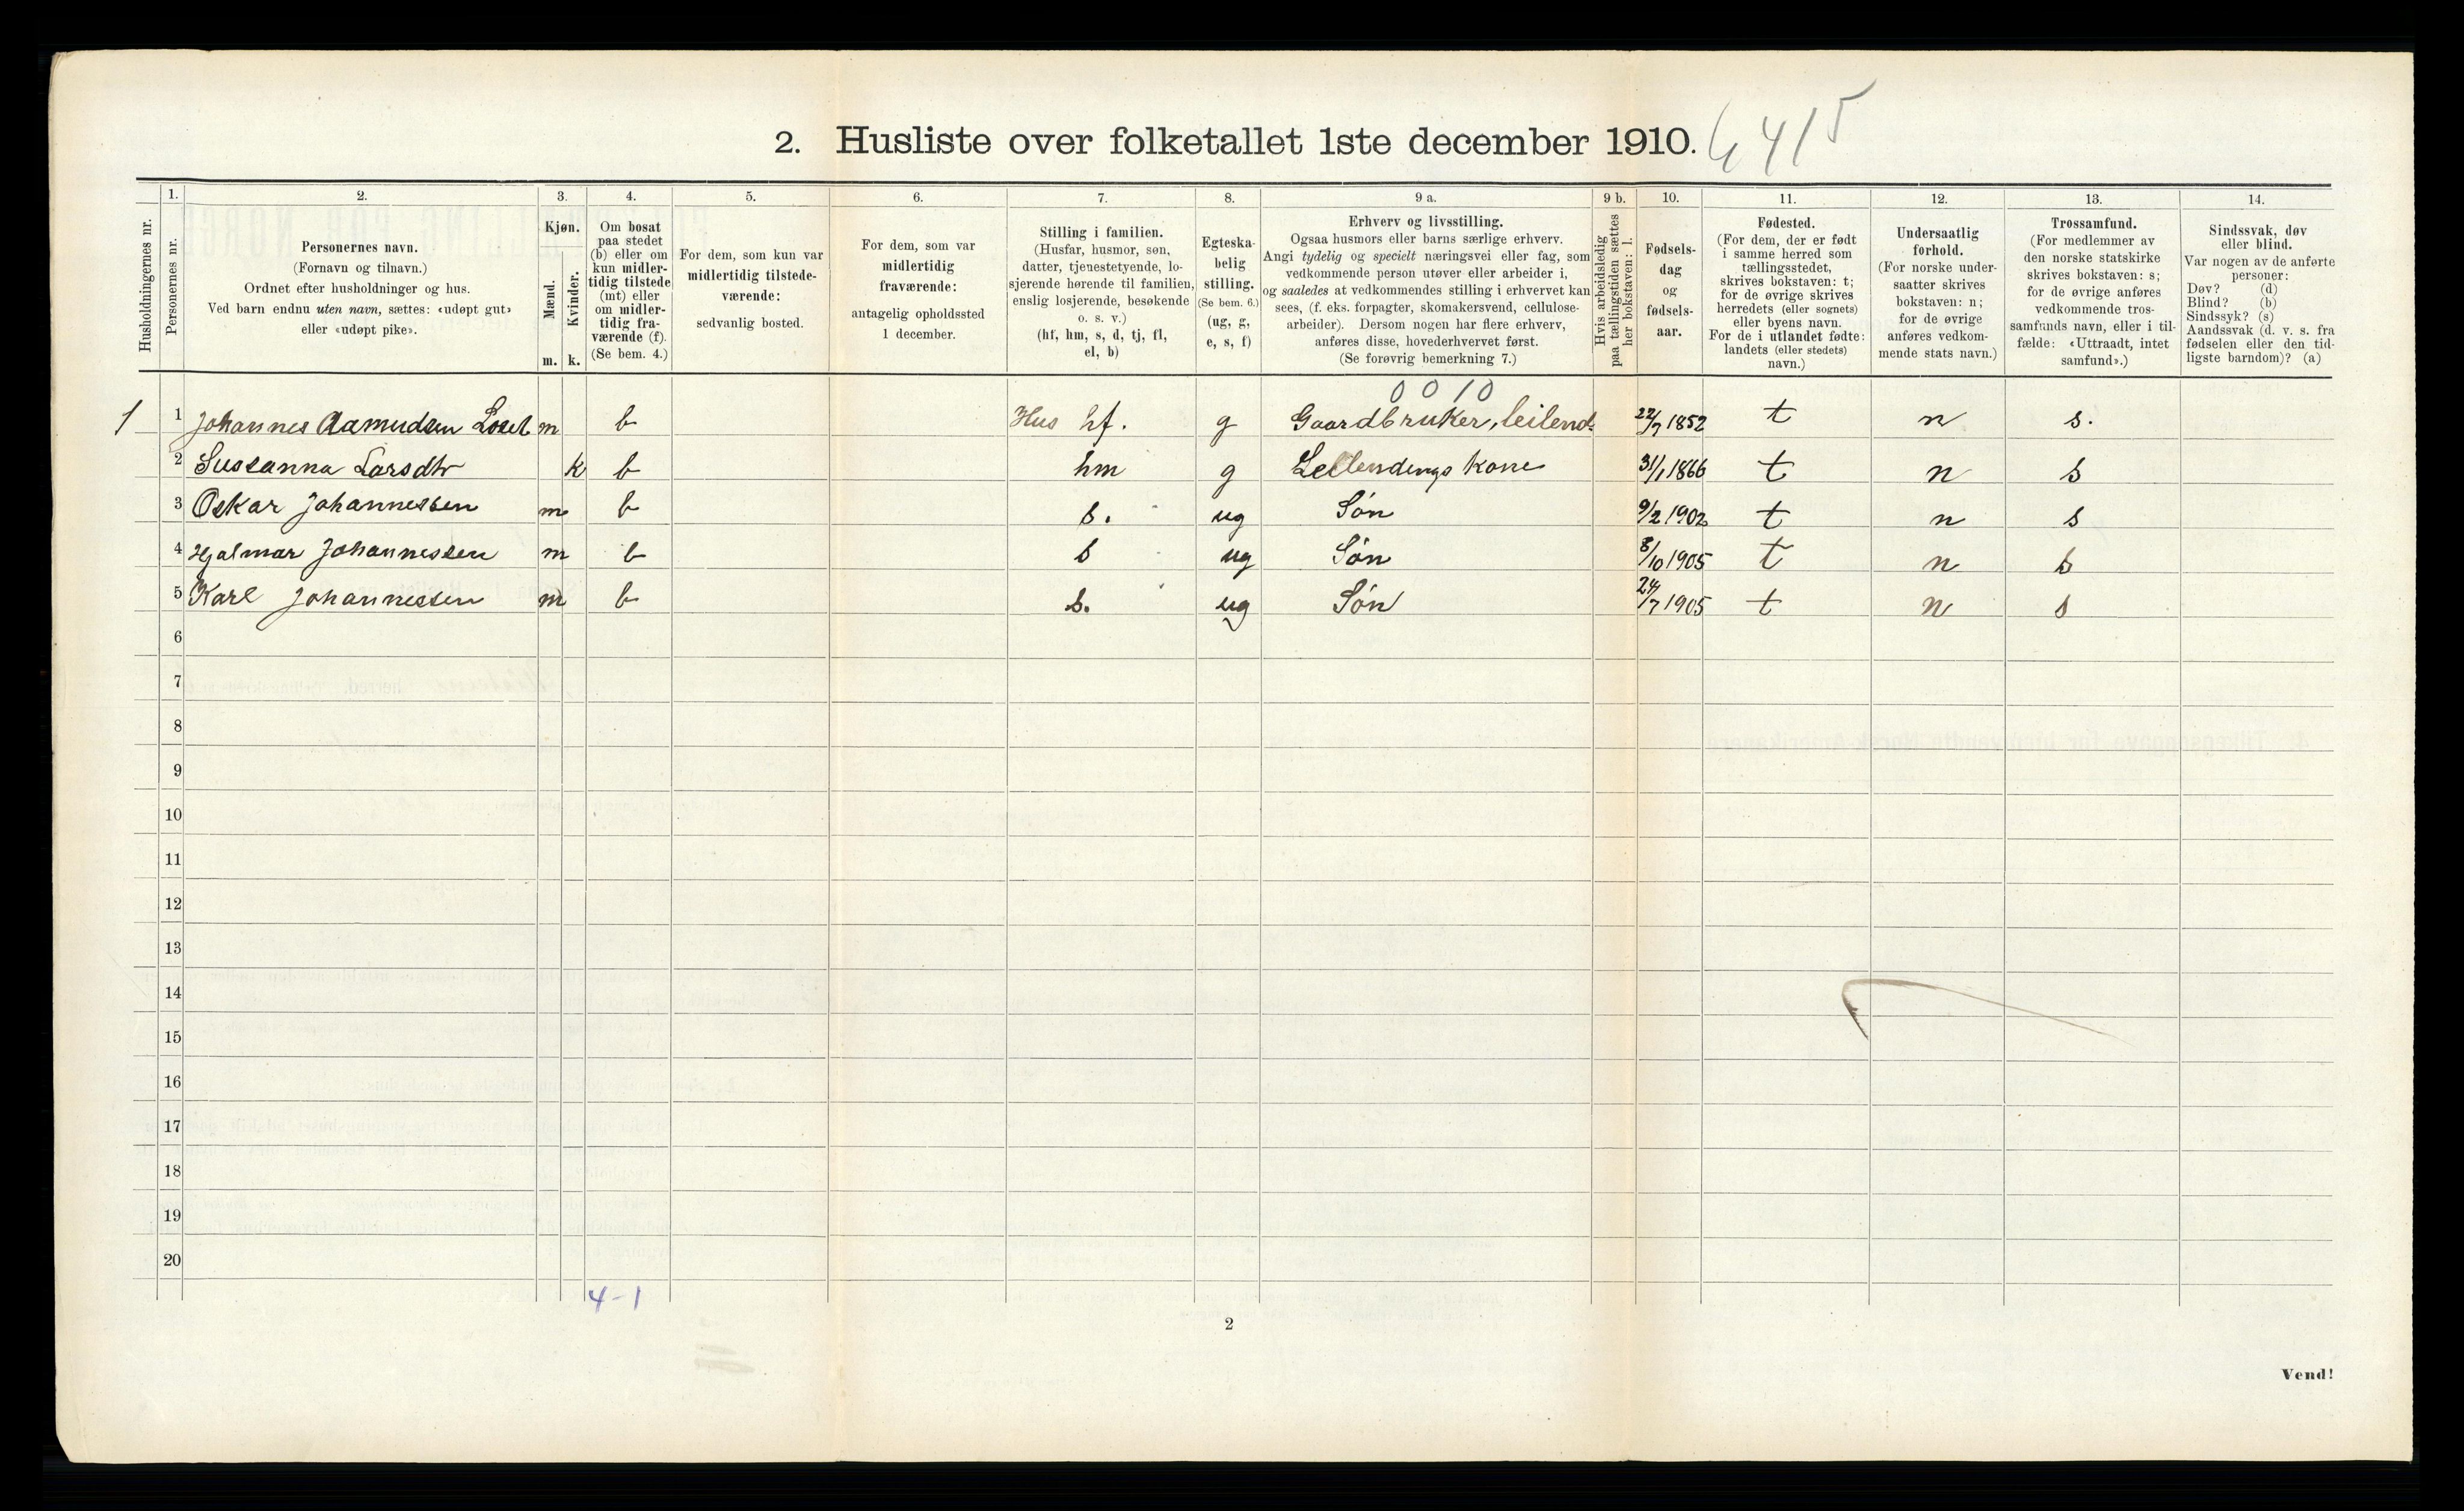 2. Husliste over folketallet 1ste december 1910. 6415
Husholdningernes nr.
1.
Personernes nr.
2.
Personernes navn.
(Fornavn og tilnavn.)
Ordnet efter husholdninger og hus.
Ved barn endnu uten navn, sættes: «udøpt gut»
eller «udøpt pike».
3.
Kjøn.
Mænd.
m.
Kvinder.
k.
4.
Om bosat
paa stedet
(b) eller om
kun midler-
tidig tilstede
(mt) eller
om midler-
tidig fra-
værende (f).
(Se bem. 4.)
5.
For dem, som kun var
midlertidig tilstede-
værende:
sedvanlig bosted.
6.
For dem, som var
midlertidig
fraværende:
antagelig opholdssted
1 december.
7.
Stilling i familien.
(Husfar, husmor, søn,
datter, tjenestetyende, lo-
sjerende hørende til familien,
enslig losjerende, besøkende
o. s. v.)
(hf, hm, s, d, tj, fl,
el, b)
8.
Egteska-
belig
stilling.
(Se bem. 6.)
(ug, g,
e, s, f)
9 a.
Erhverv og livsstilling.
Ogsaa husmors eller barns særlige erhverv.
Angi tydelig og specielt næringsvei eller fag, som
vedkommende person utøver eller arbeider i,
og saaledes at vedkommendes stilling i erhvervet kan
sees, (f. eks. forpagter, skomakersvend, cellulose-
arbeider). Dersom nogen har flere erhverv,
anføres disse, hovederhvervet først.
(Se forøvrig bemerkning 7.)
9 b.
Hvis arbeidsledig
paa tællingstiden sættes
her bokstaven: l.
10.
Fødsels-
dag
og
fødsels-
aar.
11.
Fødested.
(For dem, der er født
i samme herred som
tællingsstedet,
skrives bokstaven: t;
for de øvrige skrives
herredets (eller sognets)
eller byens navn.
For de i utlandet fødte:
landets (eller stedets)
navn.)
12.
Undersaatlig
forhold.
(For norske under-
saatter skrives
bokstaven: n;
for de øvrige
anføres vedkom-
mende stats navn.)
13.
Trossamfund.
(For medlemmer av
den norske statskirke
skrives bokstaven: s;
for de øvrige anføres
vedkommende tros-
samfunds navn, eller i til-
fælde: «Uttraadt, intet
samfund».)
14.
Sindssvak, døv
eller blind.
Var nogen av de anførte
personer:
Døv? (d)
Blind? (b)
Sindssyk? (s)
Aandssvak (d. v. s. fra
fødselen eller den tid-
ligste barndom)? (a)
0 0 1 0
1 1 Johannes Aamudsen Loset m b Hus hf. g Gaardbruker, leilend. 22/7 1852 t n s.
2 Susanna Larsdtr k b hm g Leilendings Kone 31/1 1866 t n s
3 Oskar Johannessen m b s. ug Søn 9/2 1902 t n s
4 Hjalmar Johannessen m b s ug Søn 8/10 1905 t n s
5 Karl Johannessen m b s. ug Søn 24/7 1905 t n s
6
7
8
9
10
11
12
13
14
15
16
17
18
19
20
4-1
2
Vend!